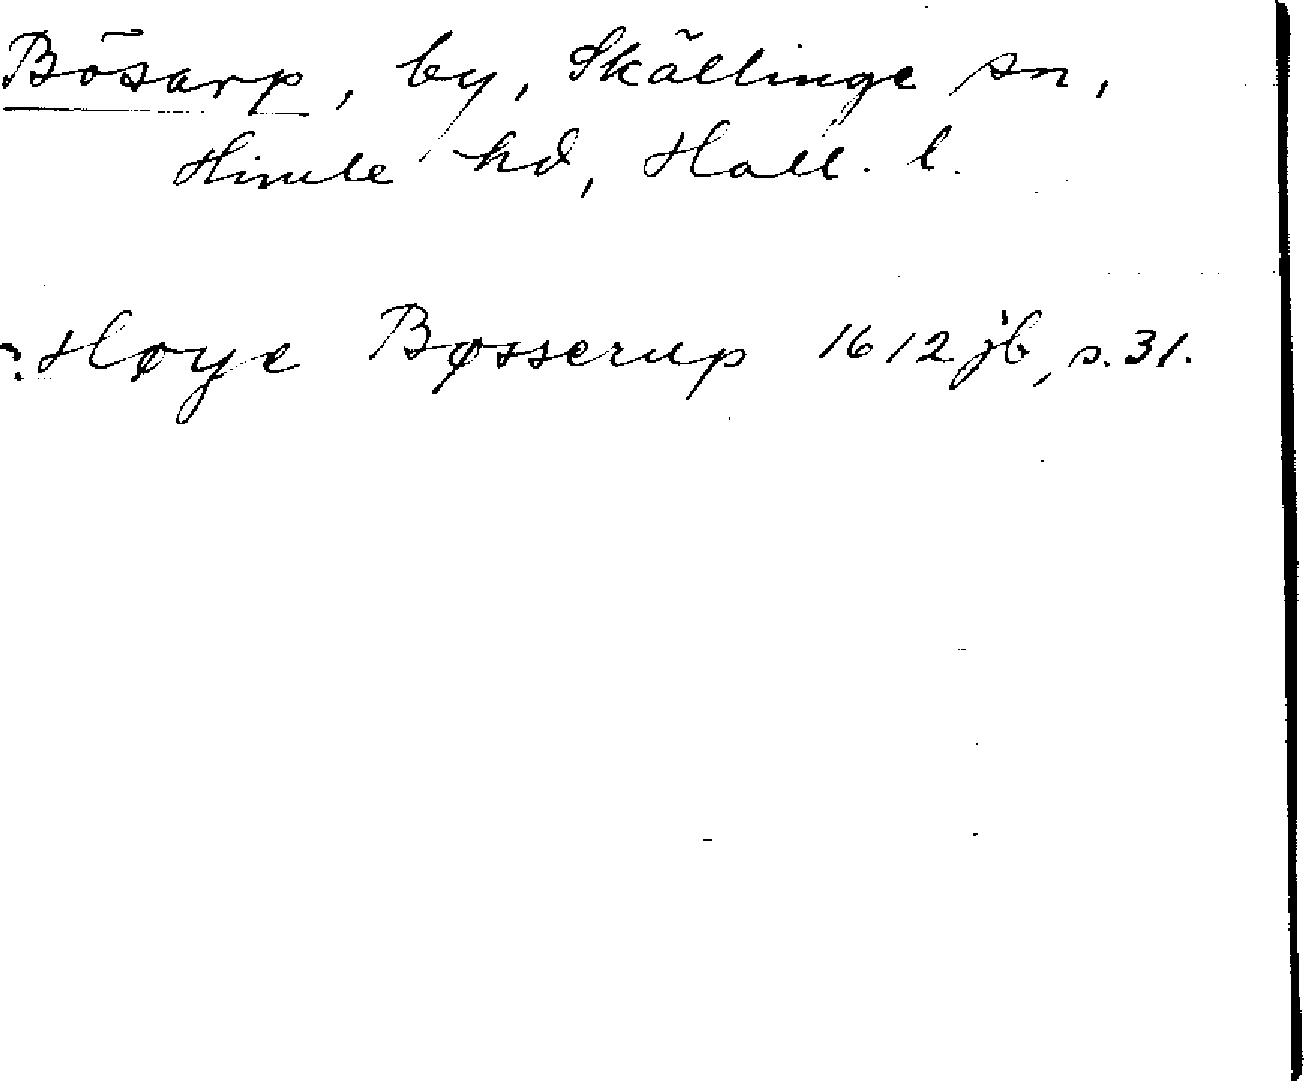 Bösarp, by, Skällinge sn,
Himle hd, Hall. l.
?. Høye Bøsserup 1612 jb, s. 31.